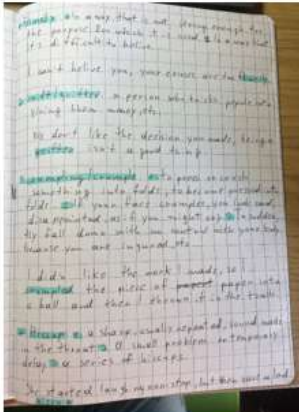 in a way that is not strong enough for
the purpose for which it is used. in a way that
it's difficult to belive.
I can't belive you, your excuses are too
a person who tricks people into
giving them money, etc.
We don't like the decision you made, being a
isn't a good thing.
to press or crush
something into folds, to become pressed, into
folds. If your face crumples, you look sad,
disappointed, as if you might cry.
fall down with no control
because you are injured, etc
I didn't like the work I made, so I
crumpled the piece of paper into
a ball and then I thrown it in the trash
a sharp, usually repeated, sound made
in the throat. a small problem or temporary
delay. a series of hiccups.
He started laughing nonstop, but then